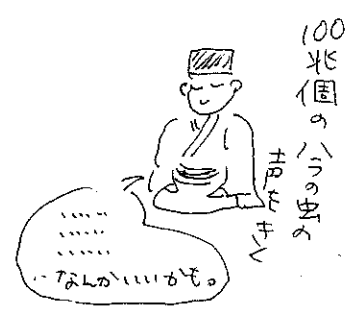 100
兆個のハラの虫の
声をきく
……
……
……
…なんかいいかも。